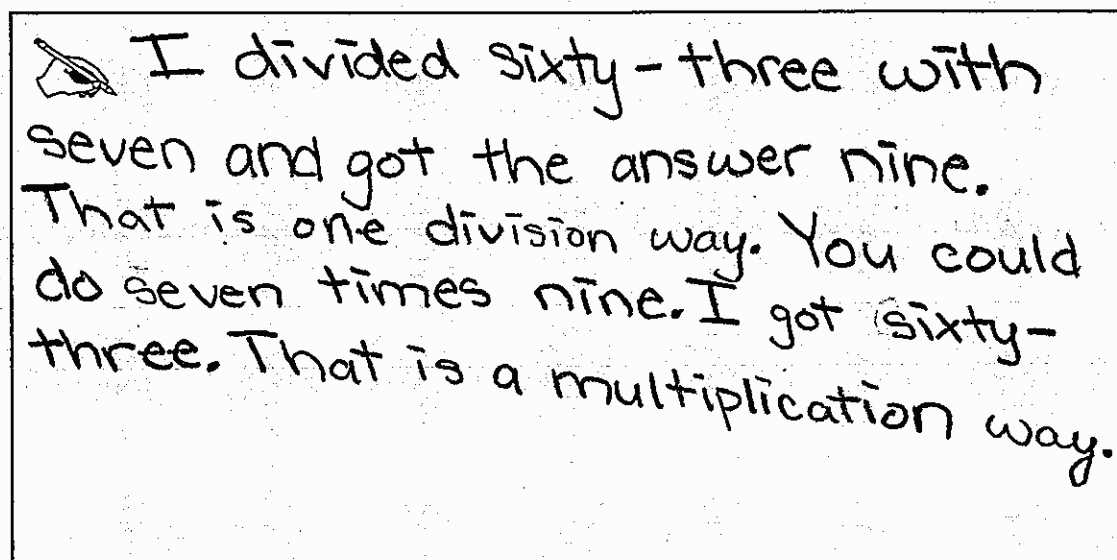 I divided sixty-three with
seven and got the answer nine.
That is one division way. You could
do seven times nine. I got sixty-
three. That is a multiplication way.